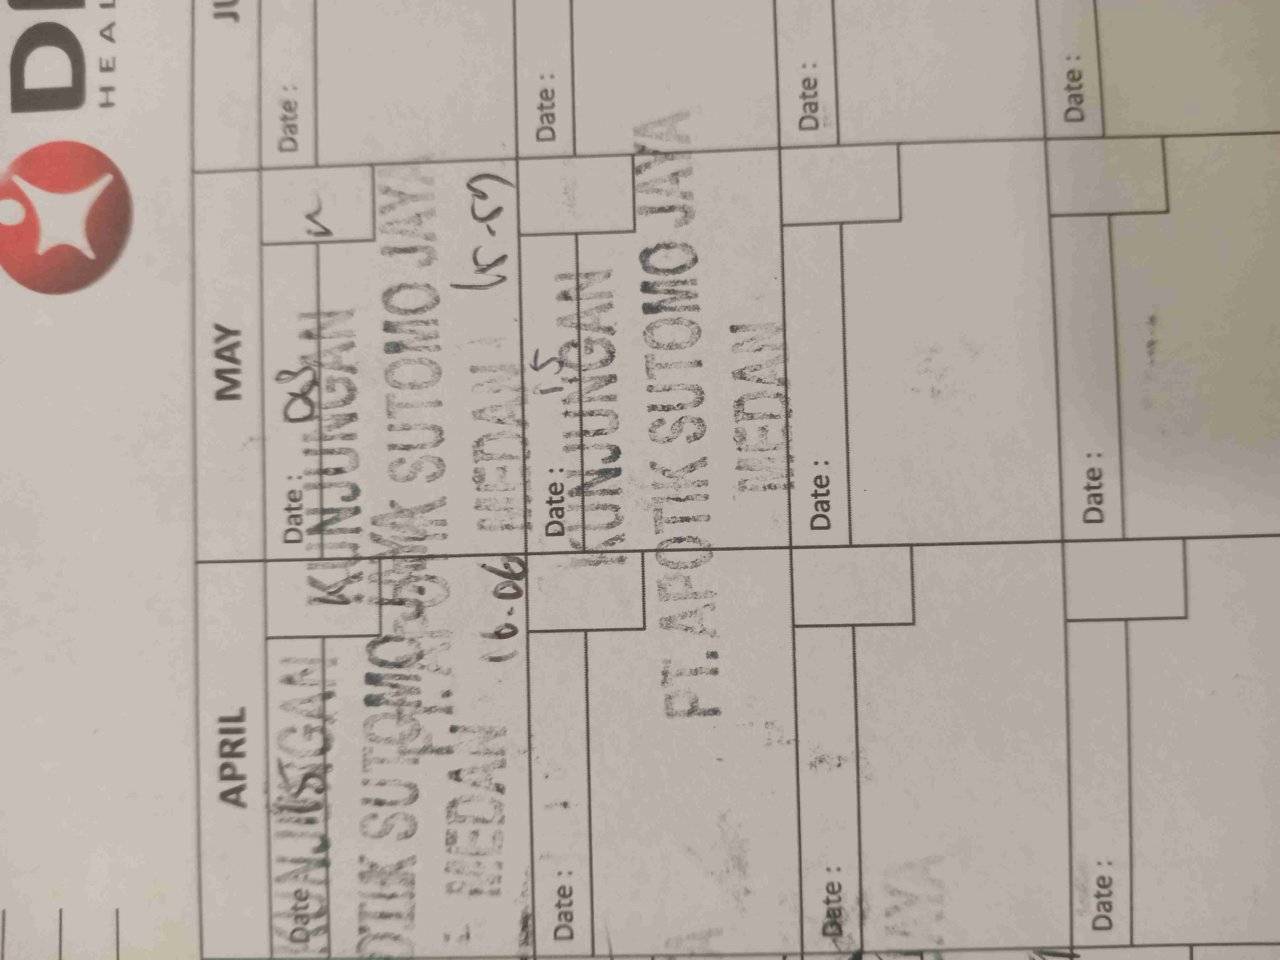 APRIL
MAY
Date :
15
KUNJUNGAN
OTIK SUTOMO JAYA
MEDAN
16.06
Date :
08
KUNJUNGAN
PT. APOTIK SUTOMO JAYA
MEDAN
15.59
Date :
Date :
Date :
15
KUNJUNGAN
PT. APOTIK SUTOMO JAYA
MEDAN
Date :
Date :
Date :
Date :
JAYA
Date :
Date :
Date :